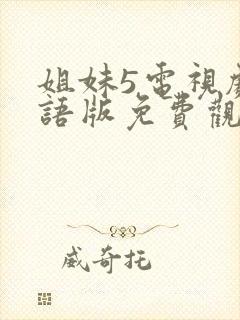 姐妹5電視
語版免費觀
威奇托